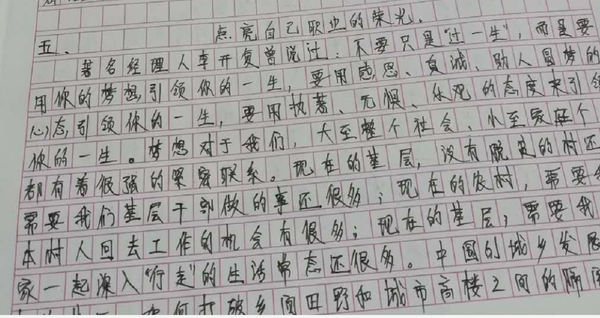 五、 点亮自己职业的荣光.
著名经理人李开复曾说过:不要只是"过一生",而是要
用你的梦想引领你的一生,要用感恩、真诚、助人圆梦的
心态引领你的一生,要用执著、无惧、乐观的态度来引领
你的一生。梦想对于我们,大至整个社会、小至家庭个
都有着很强的紧密联系。现在的基层,没有脱贫的村还
需要我们基层干部做的事还很多;现在的农村,需要
本村人回去工作的机会有很多;现在的基层,需要我
家一起深入"行走"的生活常态还很多。中国的城乡发展
如何打破乡间田野和城市高楼之间的隔